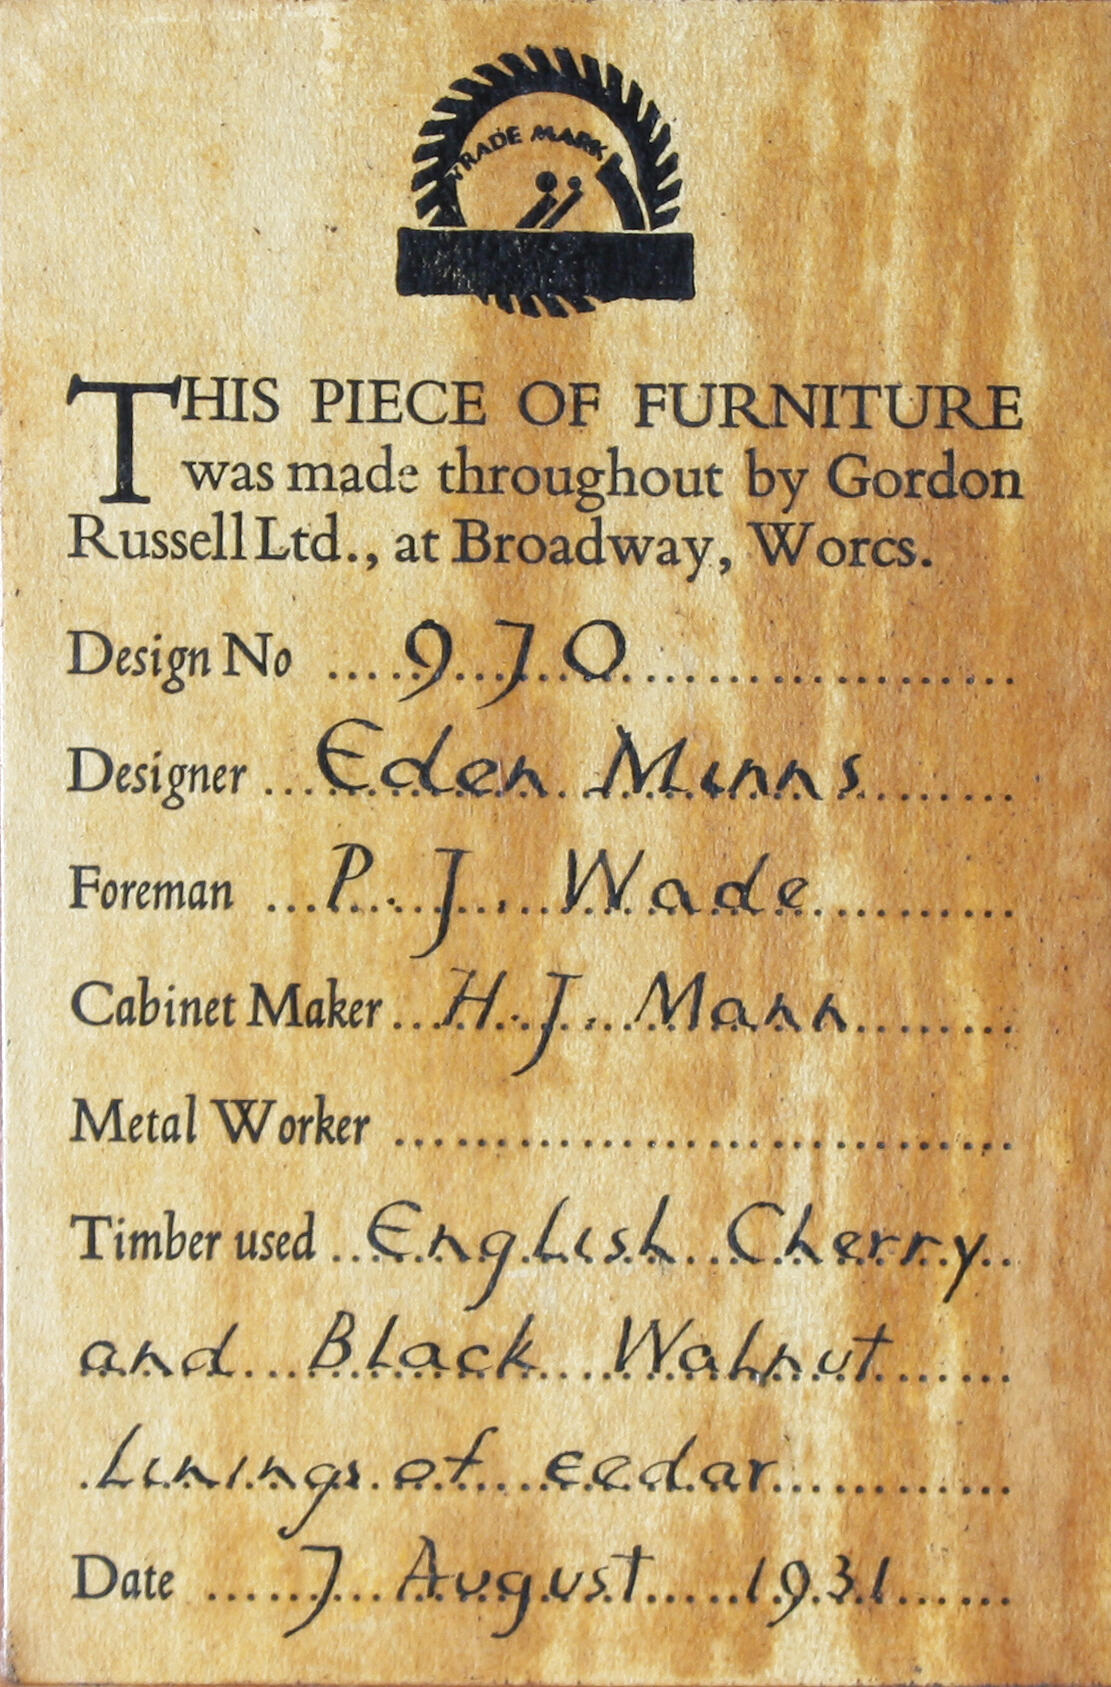 TRADE MARK
THIS PIECE OF FURNITURE
was made throughout by Gordon
Russell Ltd., at Broadway, Worcs.
Design No 970
Designer Eden Minns
Foreman P. J. Wade
Cabinet Maker H. J. Mann
Metal Worker
Timber used English Cherry
and Black Walnut
Linings of cedar
Date 7 August 1931